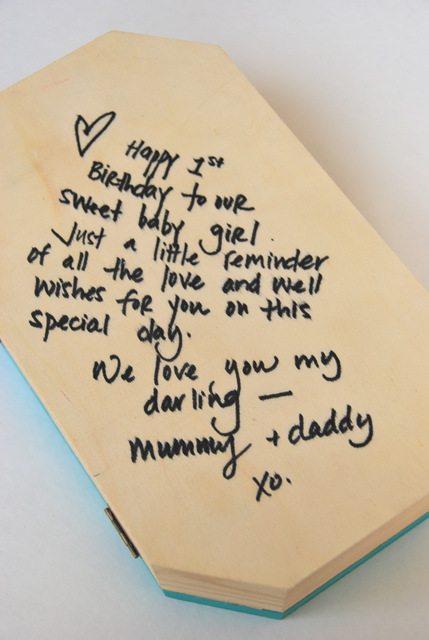 Happy 1st
Birthday to our
sweet baby girl.
Just a little reminder
of all the love and well
wishes for you on this
special day.
We love you my
darling —
mummy + daddy
xo.